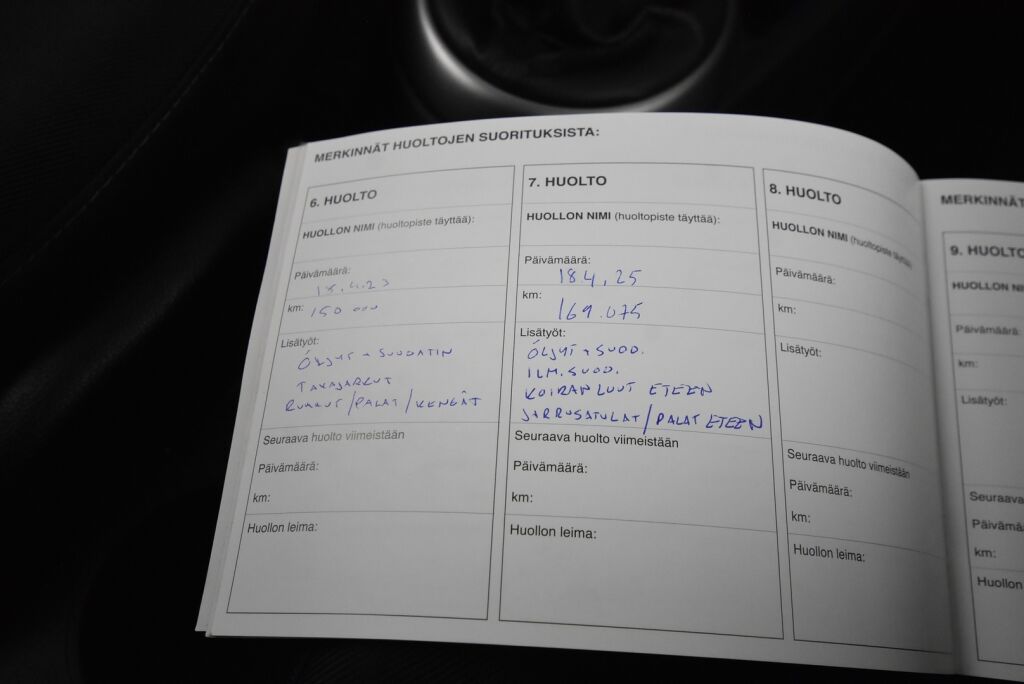 MERKINNÄT HUOLTOJEN SUORITUKSISTA:
6. HUOLTO
HUOLLON NIMI (huoltopiste täyttää):
Päivämäärä:
18.4.23
km: 150 000
Lisätyöt:
ÖLJYT + SUODATIN
TAKAJARRUT
RUMMUT/PALAT/KENGÄT
Seuraava huolto viimeistään
Päivämäärä:
km:
Huollon leima:
7. HUOLTO
HUOLLON NIMI (huoltopiste täyttää):
Päivämäärä:
18.4.25
km:
169.075
Lisätyöt:
ÖLJYT + SUOD.
ILM.SUOD.
KOIRANLUUT ETEEN
JARRUSATULAT/PALAT ETEEN
Seuraava huolto viimeistään
Päivämäärä:
km:
Huollon leima:
8. HUOLTO
HUOLLON NIMI (huoltopiste täyttää)
Päivämäärä:
km:
Lisätyöt:
Seuraava huolto viimeistään
Päivämäärä:
km:
Huollon leima:
MERKINNÄT
9. HUOLTO
HUOLLON NI
Päivämäärä:
km:
Lisätyöt:
Seuraava
Päivämää
km:
Huollon